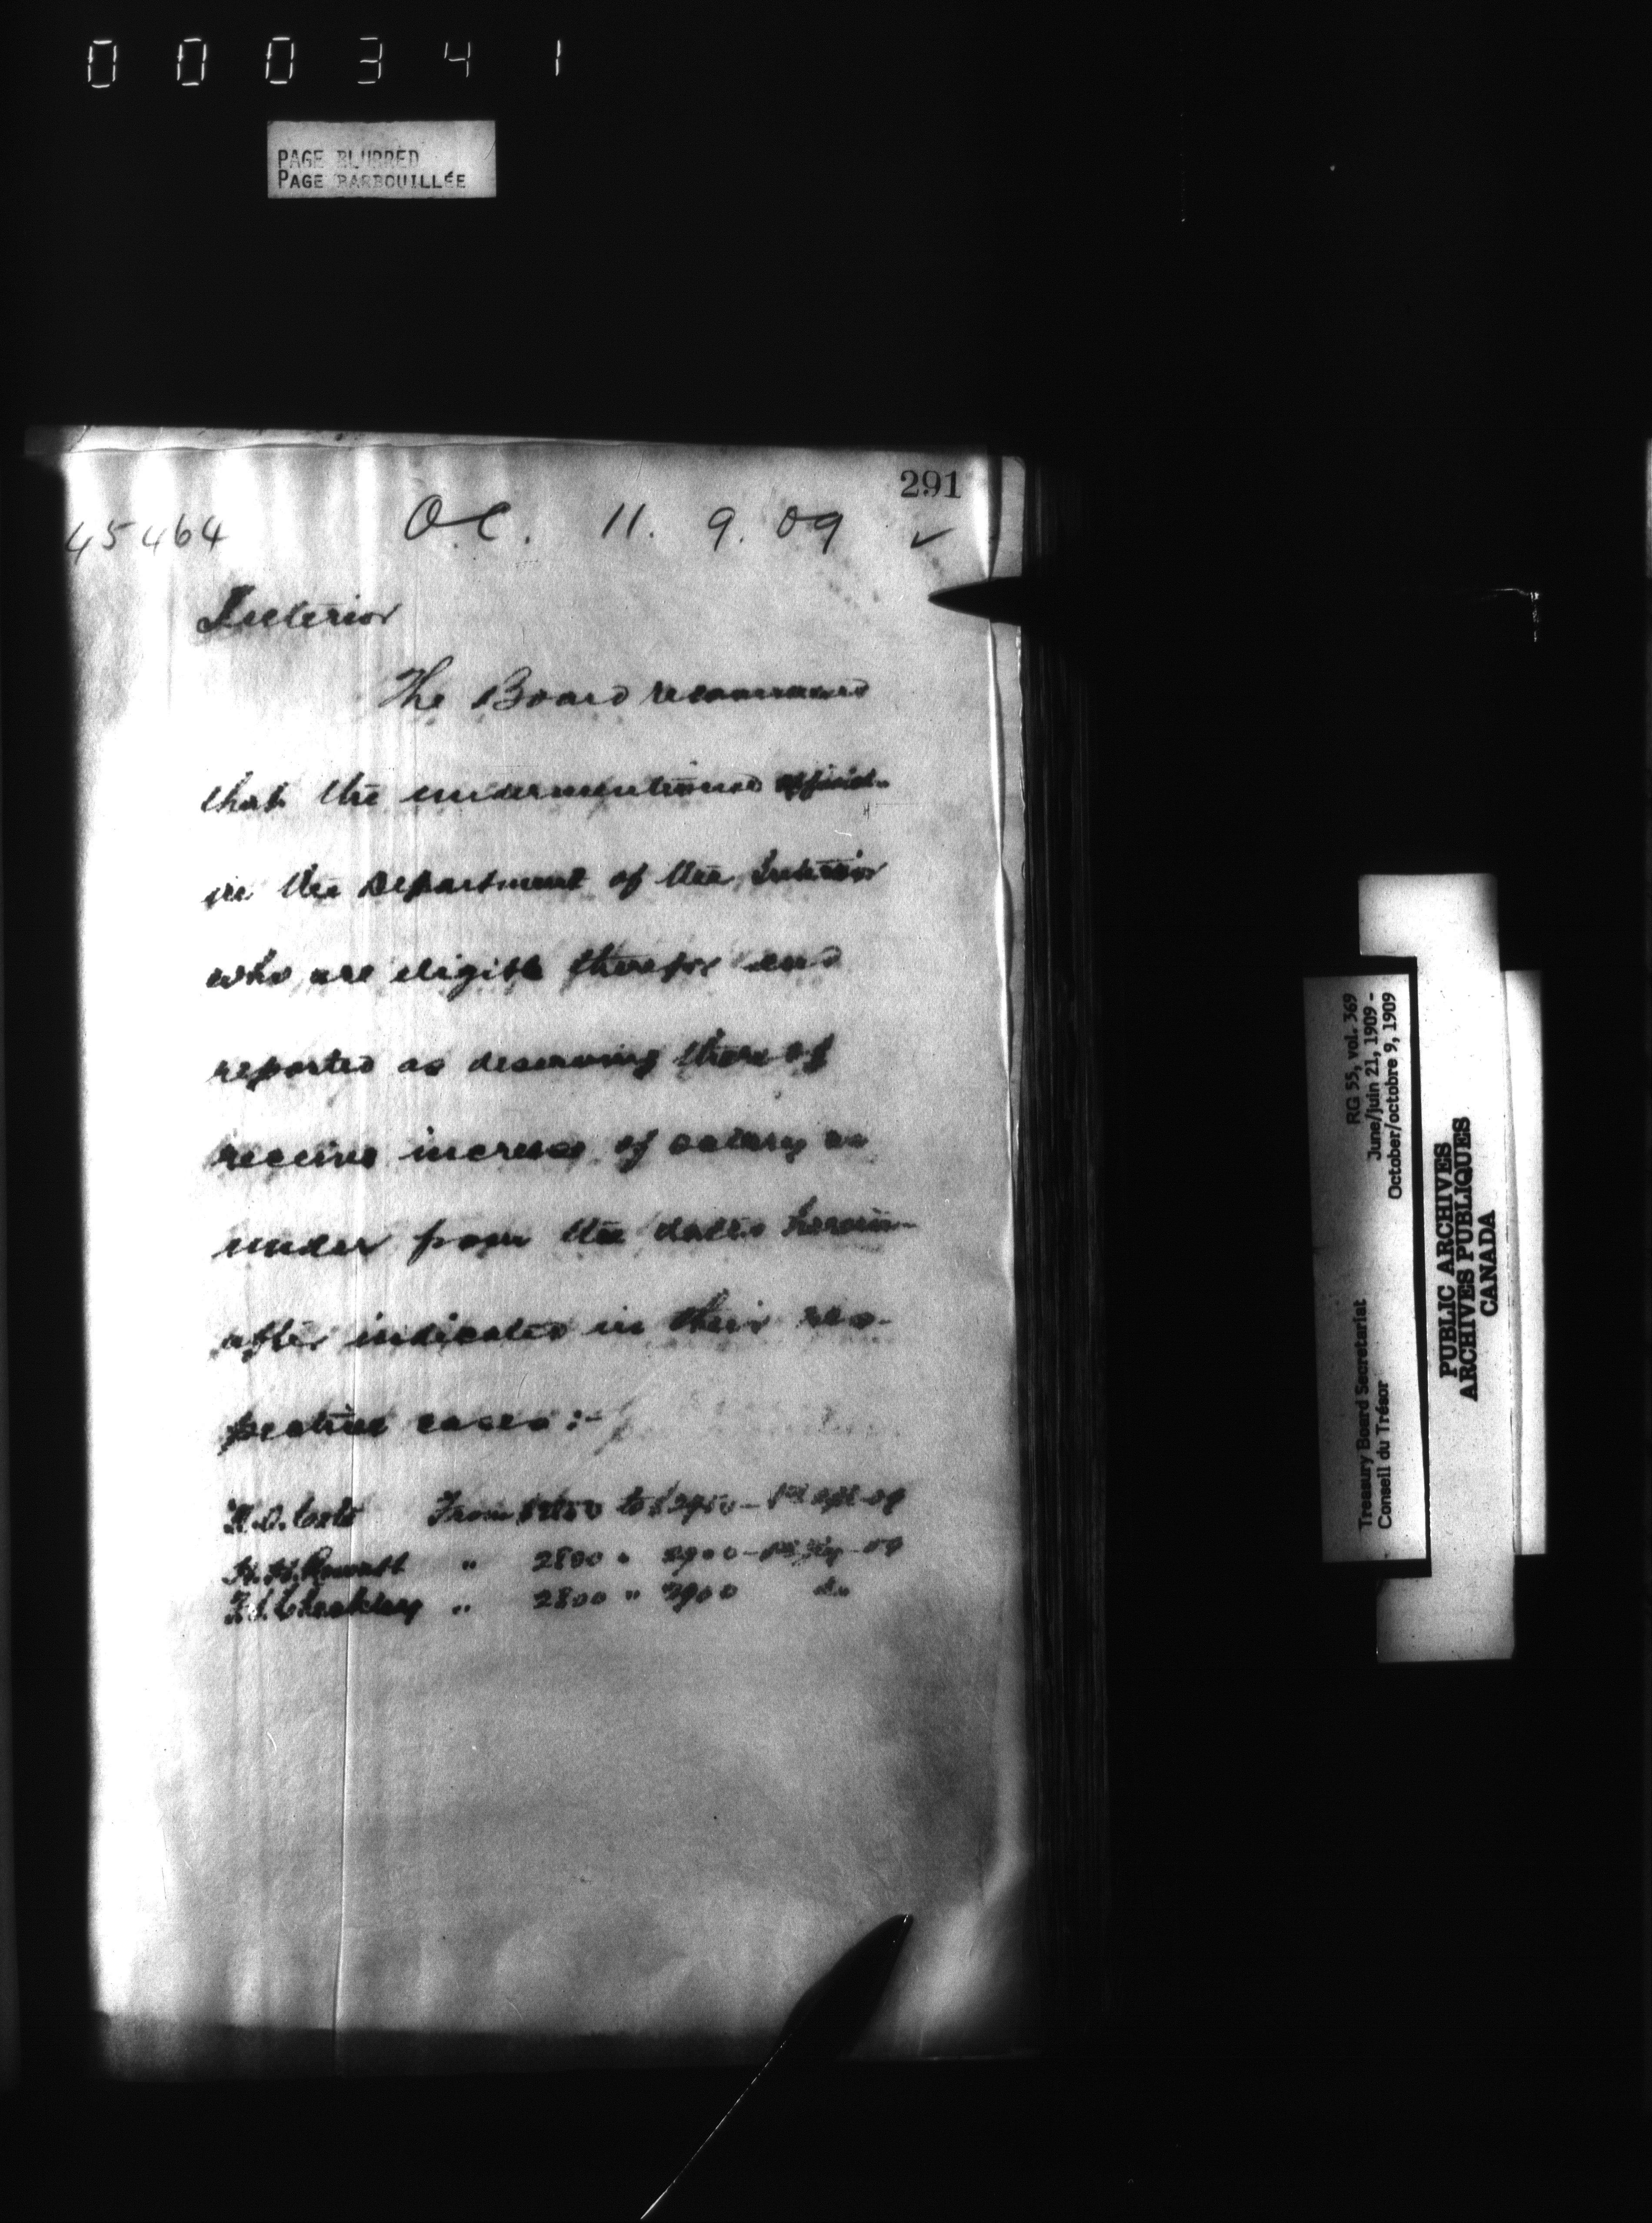 000341
PAGE BLURRED
PAGE BARBOUILLÉE
291
45464 O.C. 11. 9. 09 ✓
Interior
The Board recommend
that the undermentioned
in the Department of the Interior
who are eligible therefor and
reported as deserving thereof
receive increase of salary as
under from the dates herein-
after indicated in their res-
pective cases:-
From to $2950 - 1st Apl 09
H.H. Rowatt " 2800 " 2900 - 09
" 2800 " 2900 do
RG 55, vol. 369
June/juin 21, 1909 -
October/octobre 9, 1909
Treasury Board Secretariat
Conseil du Trésor
PUBLIC ARCHIVES
ARCHIVES PUBLIQUES
CANADA